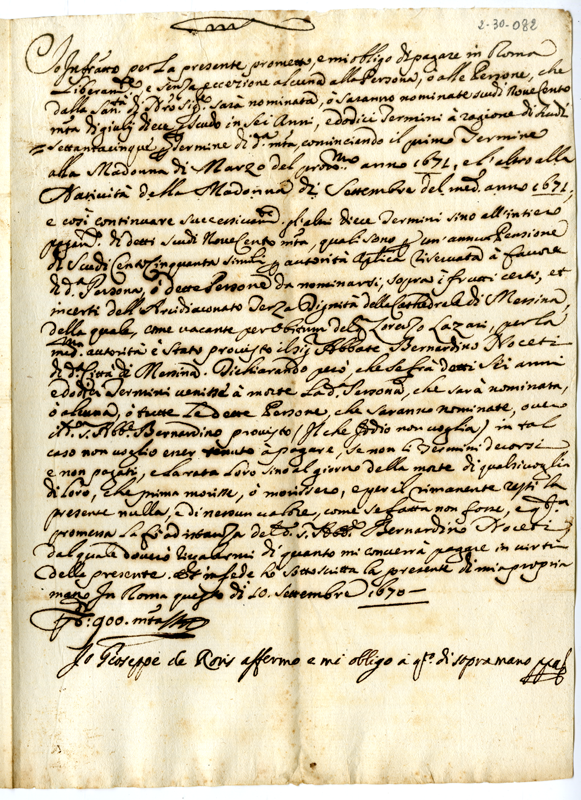 2-30-082
Io Infratto per La presente prometto, e mi obligo di pagare in Roma
Liberamte e senza eccezione alcuna alla Persona, ò alle Persone, che
dalla Santà di Nro Sigre sarà nominata, ò saranno nominate scudi Novecento
mta di giulij diece p scudo in sei Anni, e dodici Termini à ragione di scudi
settantacinque p Termine di da mta, cominciando il primo Termine
alla Madonna di Marzo del prossmo anno 1671, e l'altro alla
Natività della Madonna di Settembre del medmo anno 1671,
e così continuare successivamte gl'altri diece Termini sino all'intiero
pagamto di detti scudi Novecento mta, quali sono p un'annua Pensione
di scudi Cento Cinquanta simili p autorità Aplica riservata à favore
di da Persona, ò dette Persone da nominarsi, sopra i frutti certi, et
incerti dell'Arcidiaconato Terza Dignità della Cathedrale di Messina,
della quale, come vacante per obitum del q Lorenzo Lazari, per la
medma autorità è stato provisto il sig Abbate Bernardino Noceti
di da Città di Messina. Dichiarando però, che se frà detti sei anni
e dodici Termini venisse à morte la da Persona, che sarà nominata,
ò alcuna, ò tutte le dette Persone, che saranno nominate, overo
il do s. Abbe Bernardino provisto (il che Iddio non voglia) in tal
caso non voglio esser tenuto à pagare, se non li Termini decorsi
e non pagati, e la rata loro sino al giorno della morte di qualsivoglia
di loro, che prima morisse, ò morissero, e per il rimanente resti la
presente nulla, e di nessun valore, come se fatta non fosse, e
promessa La fò ad istanza del do s. Abbe Bernardino Noceti
dal quale doverò rivalermi di quanto mi occorrerà pagare in virtù
della presente. Et in fede hò sottoscritta la presente di mia propria
mano In Roma questo dì 10. Settembre 1670
900. mta
Io Gioseppe de Rovis affermo e mi obligo à qto di sopra mano